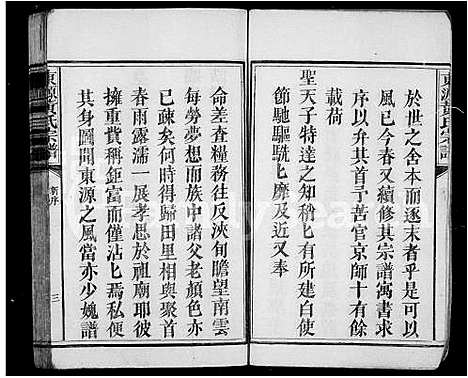 東源黄氏宗譜
於世之舍本而逐末者乎是可以
風已今春又續修其宗譜寓書求
序以弁其首予罟官京師十有餘
載荷
聖天子特達之知稍匕有所建白使
節馳驅駪匕靡及近又奉
命差查糧務往反浹旬瞻望南雲
每勞夢想而族中諸父老顏色亦
已疎矣何時得歸田里相與聚首
春雨露濡一展孝思於祖廟耶彼
擁重貲稱鉅富而僅沾匕焉私便
其身圖聞東源之風當亦少媿譜
東源黄氏宗譜
新序
三